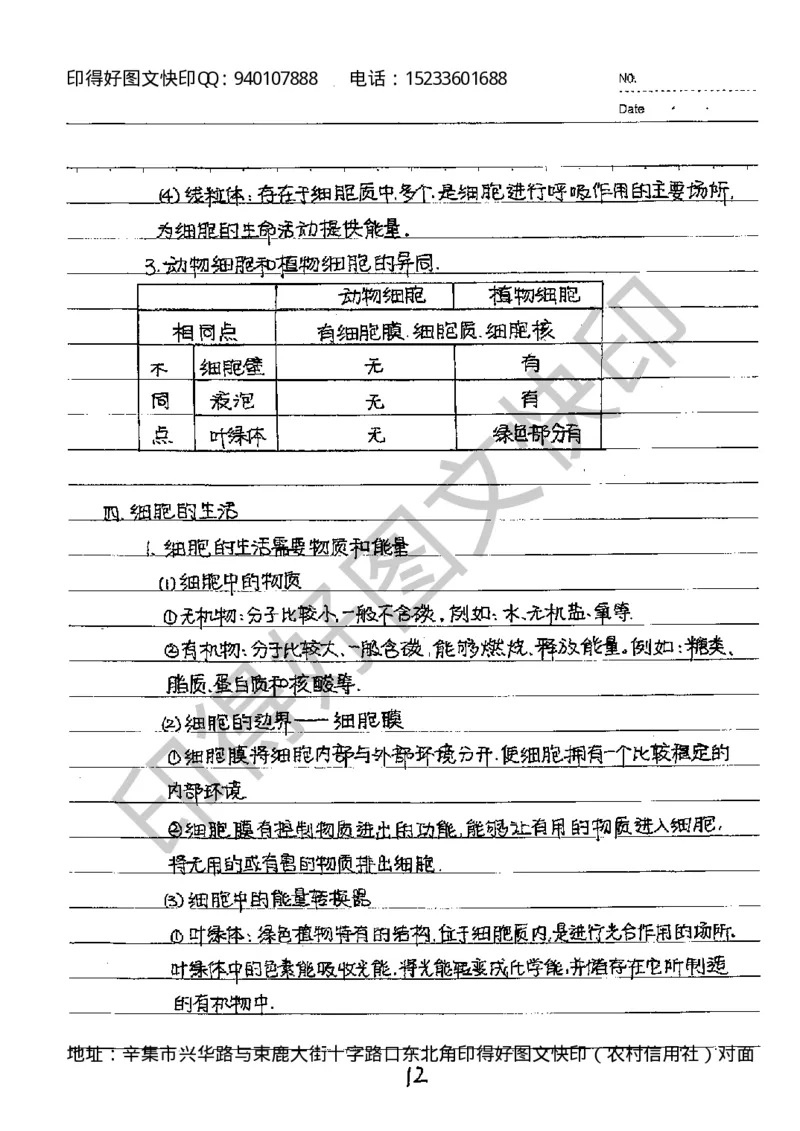 印得好图文快印QQ：940107888 电话：15233601688
NO.
Date
(4)线粒体：存在于细胞质中,多个.是细胞进行呼吸作用的主要场所,
为细胞的生命活动提供能量。
3.动物细胞和植物细胞的异同.
动物细胞 植物细胞
相同点 有细胞膜.细胞质.细胞核
不 细胞壁 无 有
同 液泡 无 有
点 叶绿体 无 绿色部分有
四.细胞的生活
1.细胞的生活需要物质和能量
(1)细胞中的物质
①无机物:分子比较小,一般不含碳，例如:水、无机盐、氧等
②有机物:分子比较大、一般含碳,能够燃烧、释放能量。例如:糖类、
脂质.蛋白质和核酸等.
(2)细胞的边界——细胞膜
①细胞膜将细胞内部与外部环境分开.使细胞拥有一个比较稳定的
内部环境
②细胞膜有控制物质进出的功能,能够让有用的物质进入细胞,
将无用的或有害的物质排出细胞.
(3)细胞中的能量转换器
①叶绿体：绿色植物特有的结构,位于细胞质内,是进行光合作用的场所.
叶绿体中的色素能吸收光能.将光能转变成化学能,并储存在它所制造
的有机物中.
地址：辛集市兴华路与束鹿大街十字路口东北角印得好图文快印（农村信用社）对面
12
印得好图文快印